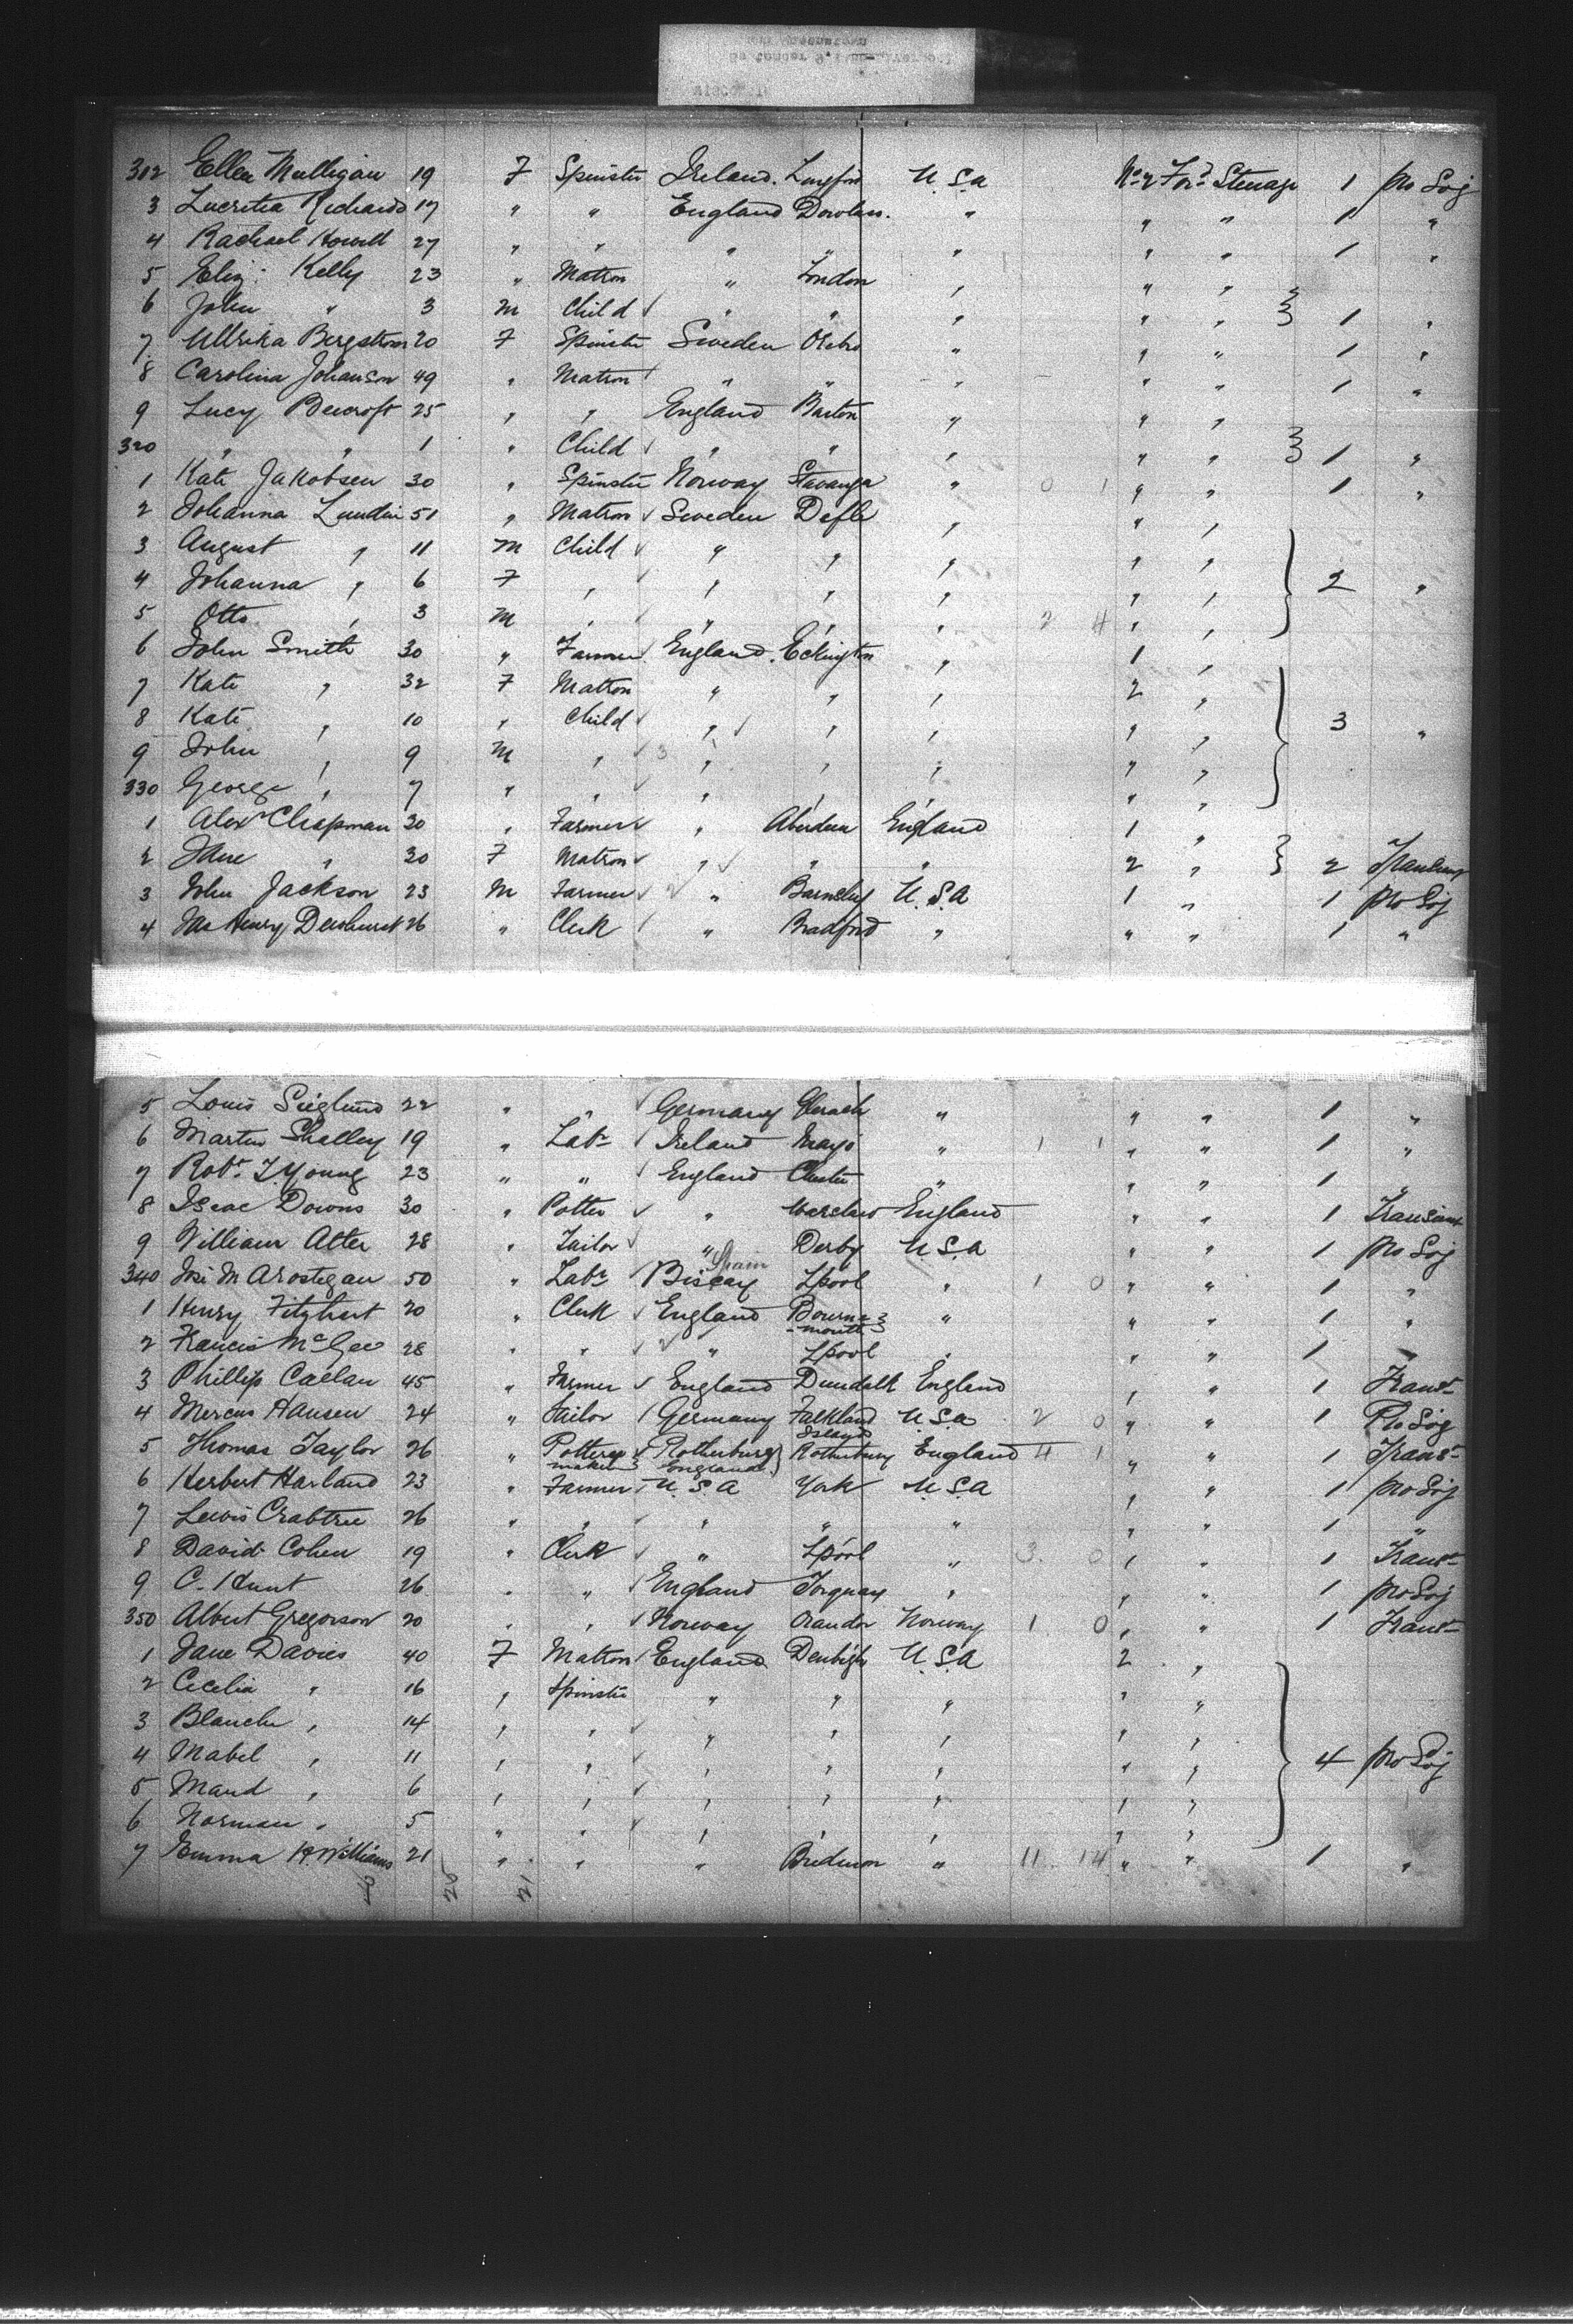 312 Ellen Mulligan 19 F Spinster Ireland. Longford U.S.a No 2 For'd Steerage 1 Pro Soj
3 Lucretia Richards 17 " " England Dowlais. " " " 1 "
4 Rachael Howell 27 " " " " " " " 1 "
5 Eliz: Kelly 23 " Matron " London " " "
6 John " 3 M Child " " " " " } 1 "
7 Ullrika Bergstrom 20 F Spinster Sweden Orebro " " " 1 "
8 Carolina Johanson 49 " Matron " " " " " 1 "
9 Lucy Becroft 25 " " England Barton " " "
320 " " 1 " Child " " " " " } 1 "
1 Kate Jakobsen 30 " Spinster Norway Stavanga " 0 1 " " 1 "
2 Johanna Lundin 51 " Matron Sweden Defle " " "
3 August " 11 M Child " " " " "
4 Johanna " 6 F " " " " " " } 2 "
5 Otto " 3 M " " " " 2 4 " "
6 John Smith 30 " Farmer England. Eckington " 1 "
7 Kate " 32 F Matron " " " 2 "
8 Kate " 10 " Child " " " " " } 3 "
9 John " 9 M " 3 " " " " "
330 George " 7 " " " " " " "
1 Alexr Chapman 30 " Farmer " Aberdeen England 1 "
2 Jane " 30 F Matron " " " 2 " } 2
3 John Jackson 23 M Farmer " Barnsley U.S.A 1 " 1 Pro Soj
4 Jas Henry Dewhurst 26 " Clerk " Bradford " " " 1 "
5 Louis Sieglund 22 " " Germany " " " 1 "
6 Martin Shalley 19 " Labr Ireland Mayo " 1 1 " " 1 "
7 Robt. T. Young 23 " " England Chester " " " 1 "
8 Isaac Downs 30 " Potter " England " " 1 Transient
9 William Atter 28 " Tailor " Derby U.S.a " " 1 Pro Soj
340 Josi M Arostegan 50 " Labr Biscay Spain Lpool " 1 0 " " 1 "
1 Henry Fitzhart 20 " Clerk England Bourne-mouth " " " 1 "
2 Francis McGee 28 " " " Lpool " " " 1 "
3 Phillip Callan 45 " Farmer England Dundalk England " " 1 Transt
4 Mercus Hansen 24 " Tailor Germany Falkland Islands U.S.a 2 0 " " 1 Pro Soj
5 Thomas Taylor 26 " Pottery maker Rotherbury England Rotherbury England 4 1 " " 1 Transt
6 Herbert Harland 23 " Farmer U.S.A York U.S.A " " 1 Pro Soj
7 Lewis Crabtree 26 " " " " " " " 1 "
8 David Cohen 19 " Clerk " Lpool " 3. 0 " " 1 Transt
9 C. Hunt 26 " " England Torquay " " " 1 Pro Soj
350 Albert Gregorson 20 " " Norway Norway 1 0 " " 1 Transt
1 Jane Davies 40 F Matron England Denbigh U.S.A 2 "
2 Cecelia " 16 " Spinster " " " " "
3 Blanche " 14 " " " " " " "
4 Mabel " 11 " " " " " " " } 4 Pro Soj
5 Maud " 6 " " " " " " "
6 Norman " 5 " " " " " " "
7 Emma H. Williams 21 " " " " 11 14 " " 1 "
28 21